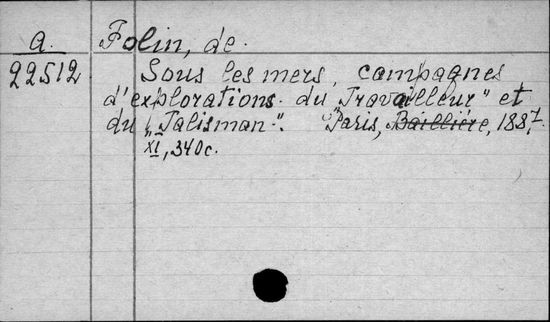 a. Folin, de.
22512 Sous les mers, campagnes
d'explorations du „Travailleur" et
du „Talisman". Paris, Baillière, 1887,
XI, 340c.